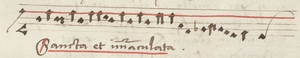 Sancta et immaculata.